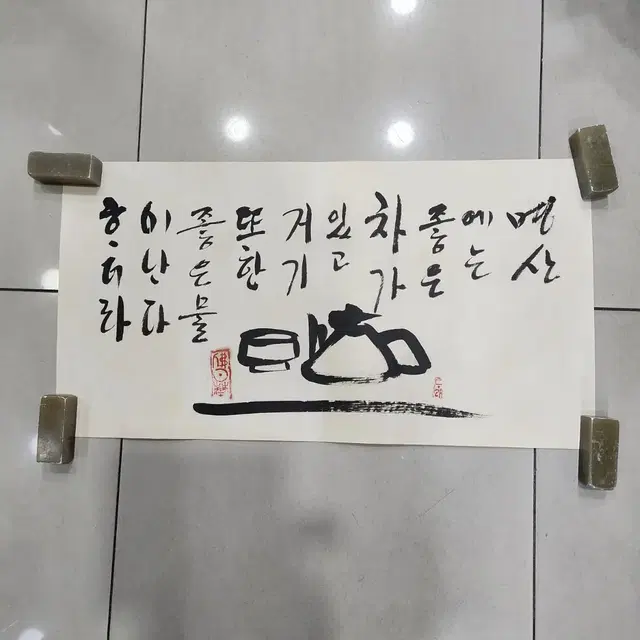 명산
에는
좋은
차가
있고
거기
또한
좋은물
이난다
하더라